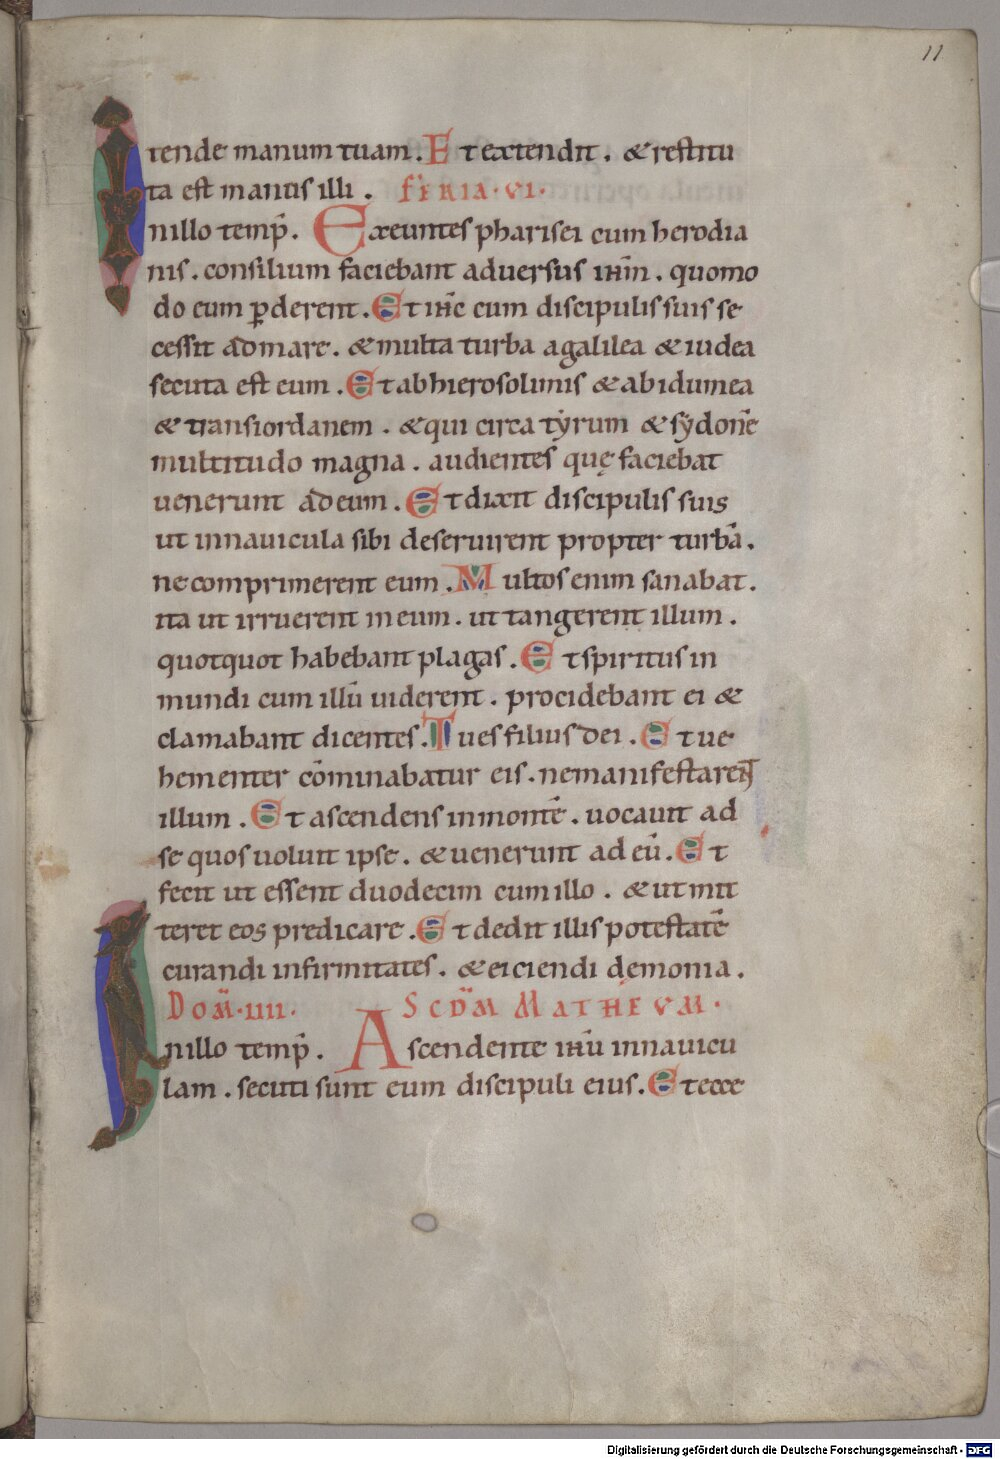 11
tende manum tuam. Et extendit. & restitu
ta est manus illi. FERIA·VI·
Inillo temp̄. Exeuntes pharisei cum herodia
nis. consilium faciebant adversus ihm̄. quomo
do eum ꝑderent. Et ihc̄ cum discipulis suis se
cessit ad mare. & multa turba agalilea & iudea
secuta est eum. Et abhierosolimis & abidumea
& transiordanem. & qui circa tẏrum & sẏdonē
multitudo magna. audientes quę faciebat
uenerunt ad eum. Et dixit discipulis suis
ut innauicula sibi deseruirent propter turbā.
ne comprimerent eum. Multos enim sanabat.
ita ut irruerent in eum. ut tangerent illum.
quotquot habebant plagas. Et spiritus in
mundi cum illū uiderent. procidebant ei &
clamabant dicentes. Tu es filius dei. Et ue
hementer cōminabatur eis. ne manifestarent
illum. Et ascendens inmontē. uocauit ad
se quos uoluit ipse. & uenerunt ad eū. Et
fecit ut essent duodecim cum illo. & ut mit
teret eos predicare. Et dedit illis potestatē
curandi infirmitates. & eiciendi dęmonia.
DOM̄·IIII· SCD̄M MATHEVM·
Inillo temp̄. Ascendente ihū innauicu
lam. secuti sunt eum discipuli eius. Et ecce
Digitalisierung gefördert durch die Deutsche Forschungsgemeinschaft - DFG